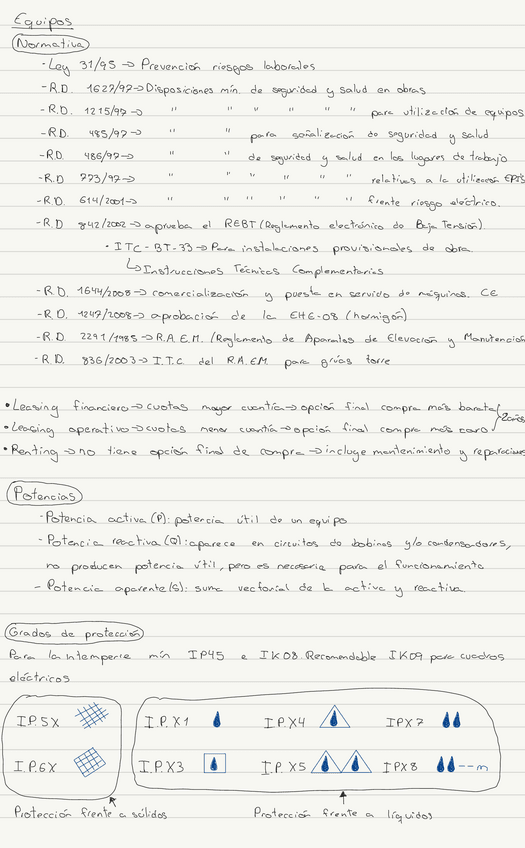 Equipos
Normativa
- Ley 31/95 → Prevención riesgos laborales
- R.D. 1627/97 → Disposiciones mín. de seguridad y salud en obras
- R.D. 1215/97 → " " " " " " para utilización de equipos
- R.D. 485/97 → " " para señalización de seguridad y salud
- R.D. 486/97 → " " de seguridad y salud en los lugares de trabajo
- R.D 773/97 → " " " " " " relativas a la utilización EPIS
- R.D. 614/2001 → " " " " " " frente riesgo eléctrico.
- R.D 842/2002 → aprueba el REBT (Reglamento electrónico de Baja Tensión)
• ITC-BT-33 → Para instalaciones provisionales de obra
↳ Instrucciones Técnicas Complementarias
- R.D. 1644/2008 → comercialización y puesta en servicio de máquinas. CE
- R.D. 1247/2008 → aprobación de la EHE-08 (hormigón)
- R.D. 2291/1985 → R.A.E.M. (Reglamento de Aparatos de Elevación y Manutención
- R.D. 836/2003 → I.T.C. del R.A.EM para grúas torre
• Leasing financiero → cuotas mayor cuantía → opción final compra más barata } 2años
• Leasing operativo → cuotas menor cuantía → opción final compra más caro
• Renting → no tiene opción final de compra → incluye mantenimiento y reparaciones
Potencias
- Potencia activa (P): potencia útil de un equipo
- Potencia reactiva (Q): aparece en circuitos de bobinas y/o condensadores,
no producen potencia útil, pero es necesaria para el funcionamiento
- Potencia aparente (S): suma vectorial de la activa y reactiva.
Grados de protección
Para la intemperie mín IP45 e IK08. Recomendable IK09 para cuadros
eléctricos
I.P.5X I.P.X1 I.P.X4 IPX7
I.P.6X I.P.X3 I.P.X5 IPX8 --m
Protección frente a sólidos Protección frente a líquidos